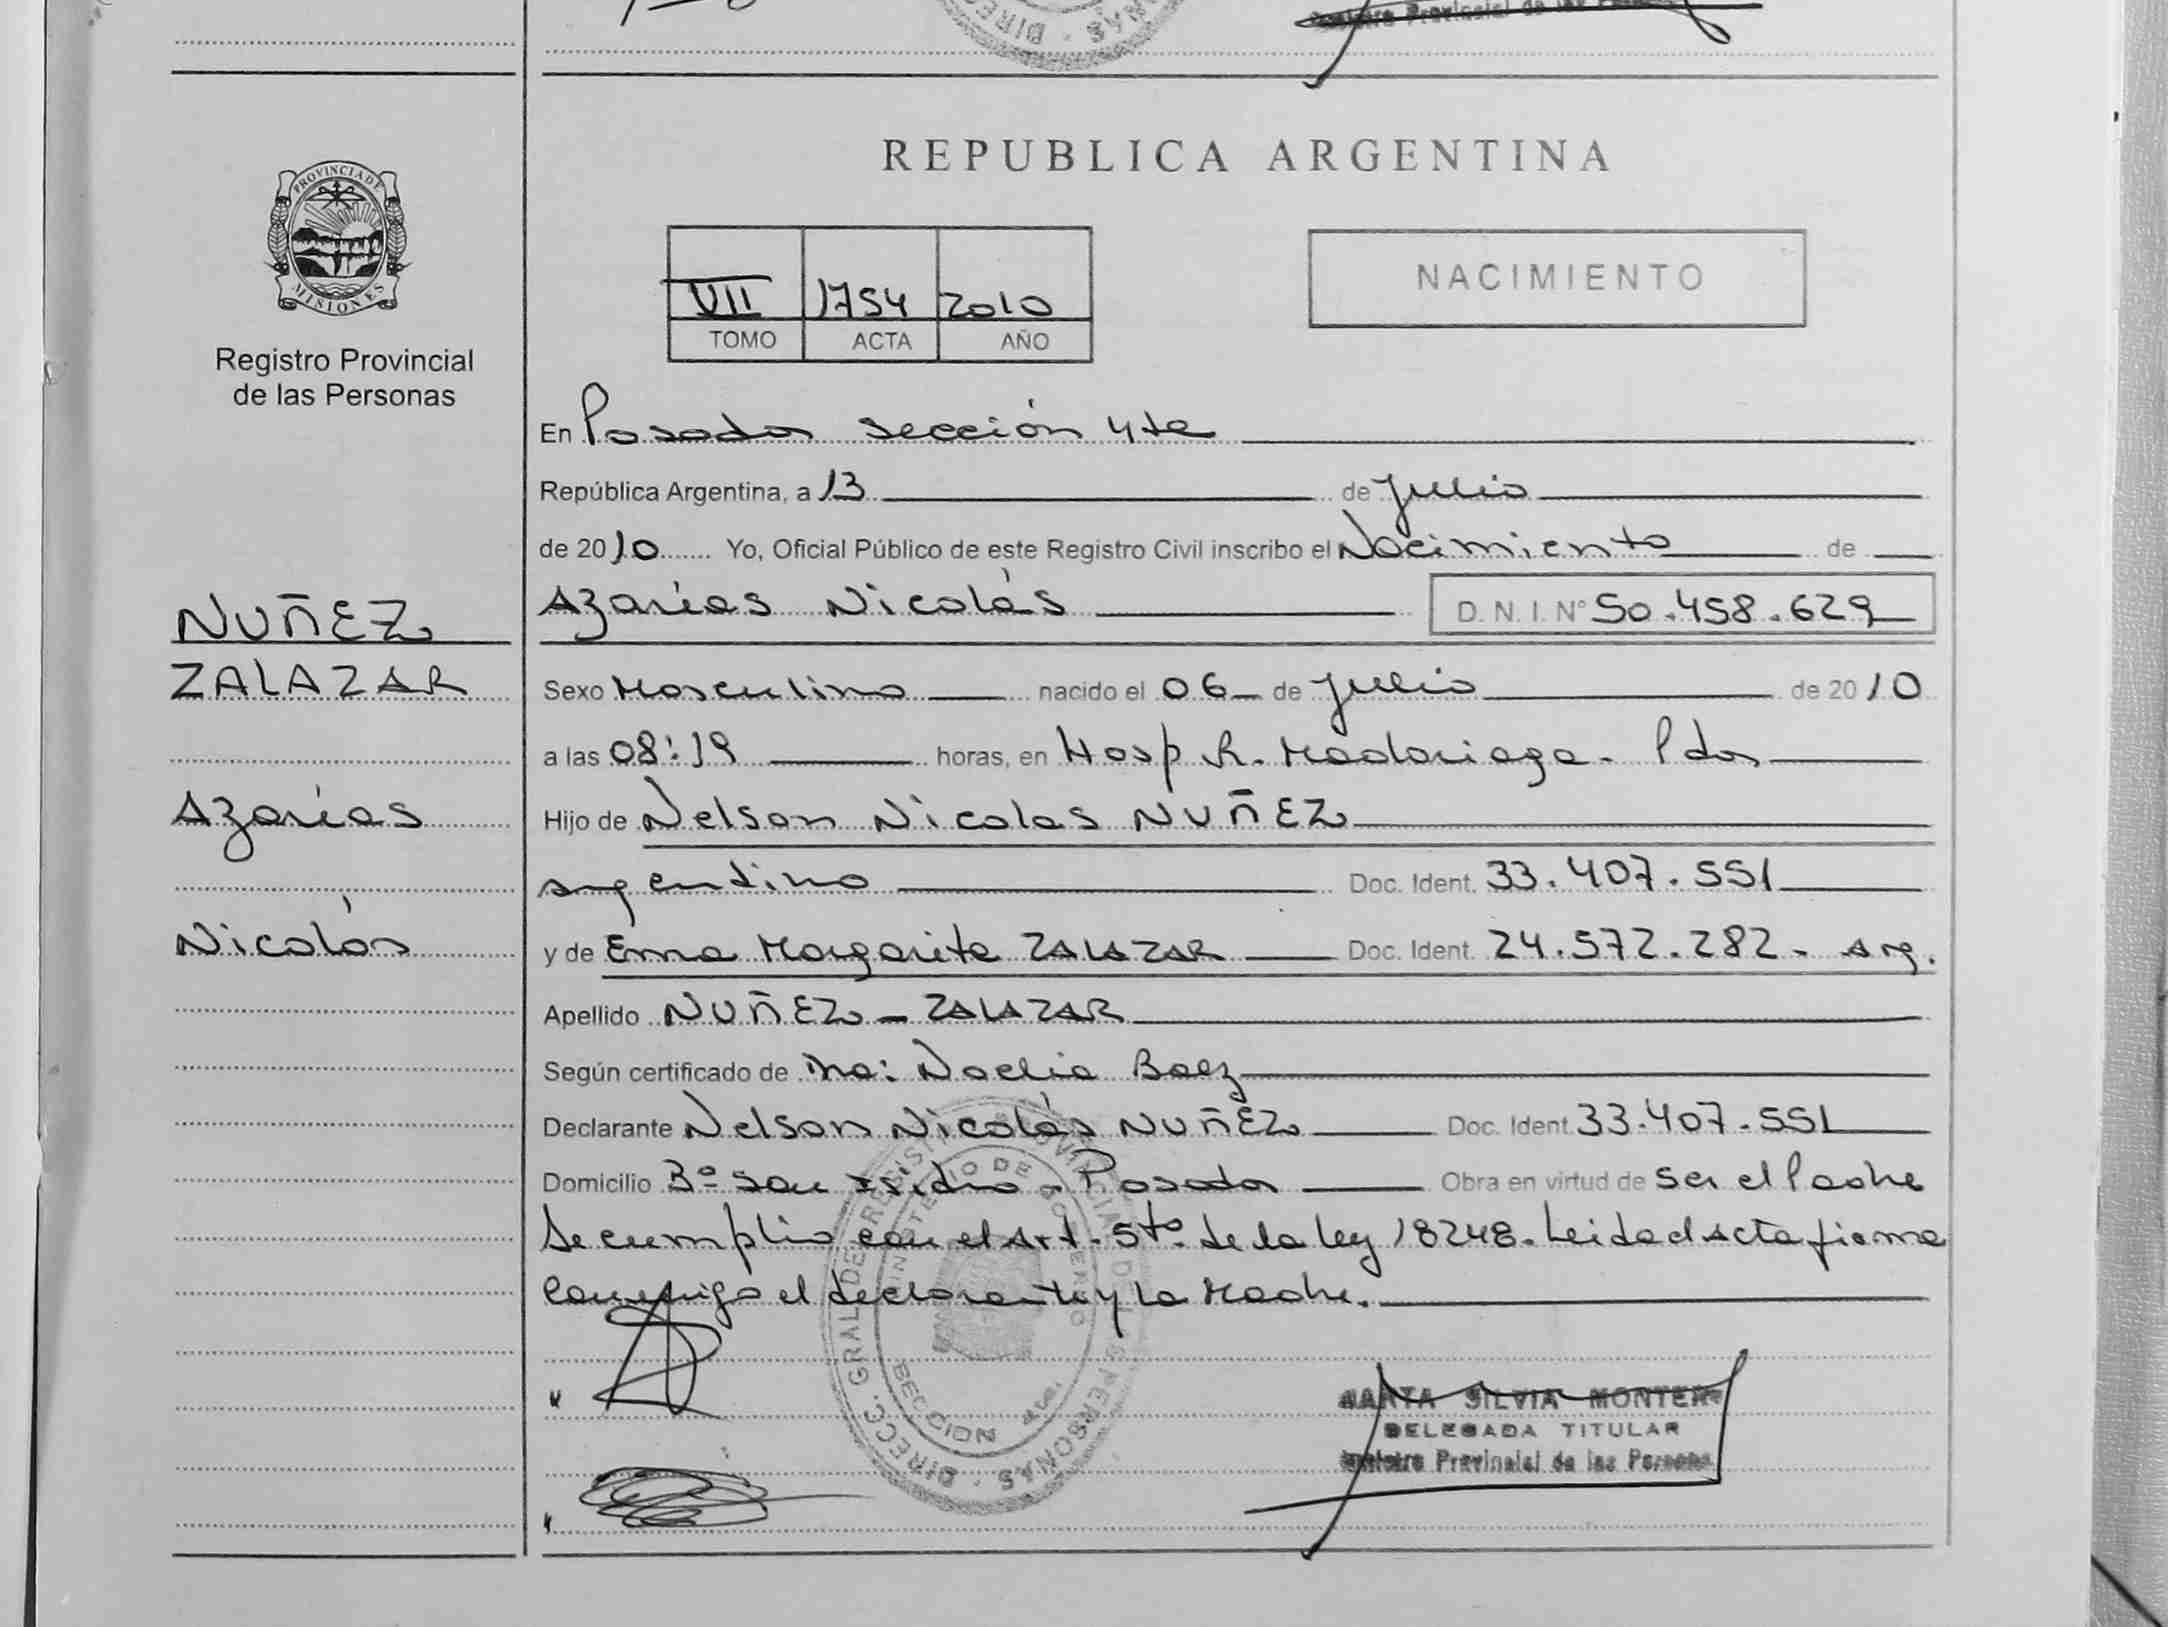 Registro Provincial de las Personas
PROVINCIA DE
MISIONES
Registro Provincial
de las Personas
NUÑEZ
ZALAZAR
Azarías
Nicolás
REPUBLICA ARGENTINA
VII 1754 2010
TOMO ACTA AÑO
NACIMIENTO
En Posadas sección 4ta
República Argentina, a 13 de Julio
de 2010 Yo, Oficial Público de este Registro Civil inscribo el Nacimiento de
Azarías Nicolás D. N. I. N° 50.458.629
Sexo Masculino nacido el 06 de Julio de 2010
a las 08:19 horas, en Hosp R. Madariaga - Pdas
Hijo de Nelson Nicolas NUÑEZ
argentino Doc. Ident. 33.407.551
y de Ema Margarita ZALAZAR Doc. Ident. 24.572.282 - Arg.
Apellido NUÑEZ - ZALAZAR
Según certificado de Noelia Baez
Declarante Nelson Nicolás NUÑEZ Doc. Ident. 33.407.551
Domicilio Bº San Isidro - Posadas Obra en virtud de ser el Padre
Se cumplió con el Art. 5to. de la ley 18248. Leida el Acta firma
conmigo el declarante y la Madre.
DIRECC. GRAL DE REGISTRO PROVINCIAL DE PERSONAS
MINISTERIO DE GOBIERNO
SECCION 4ta.
MARTA SILVIA MONTERO
DELEGADA TITULAR
Registro Provincial de las Personas